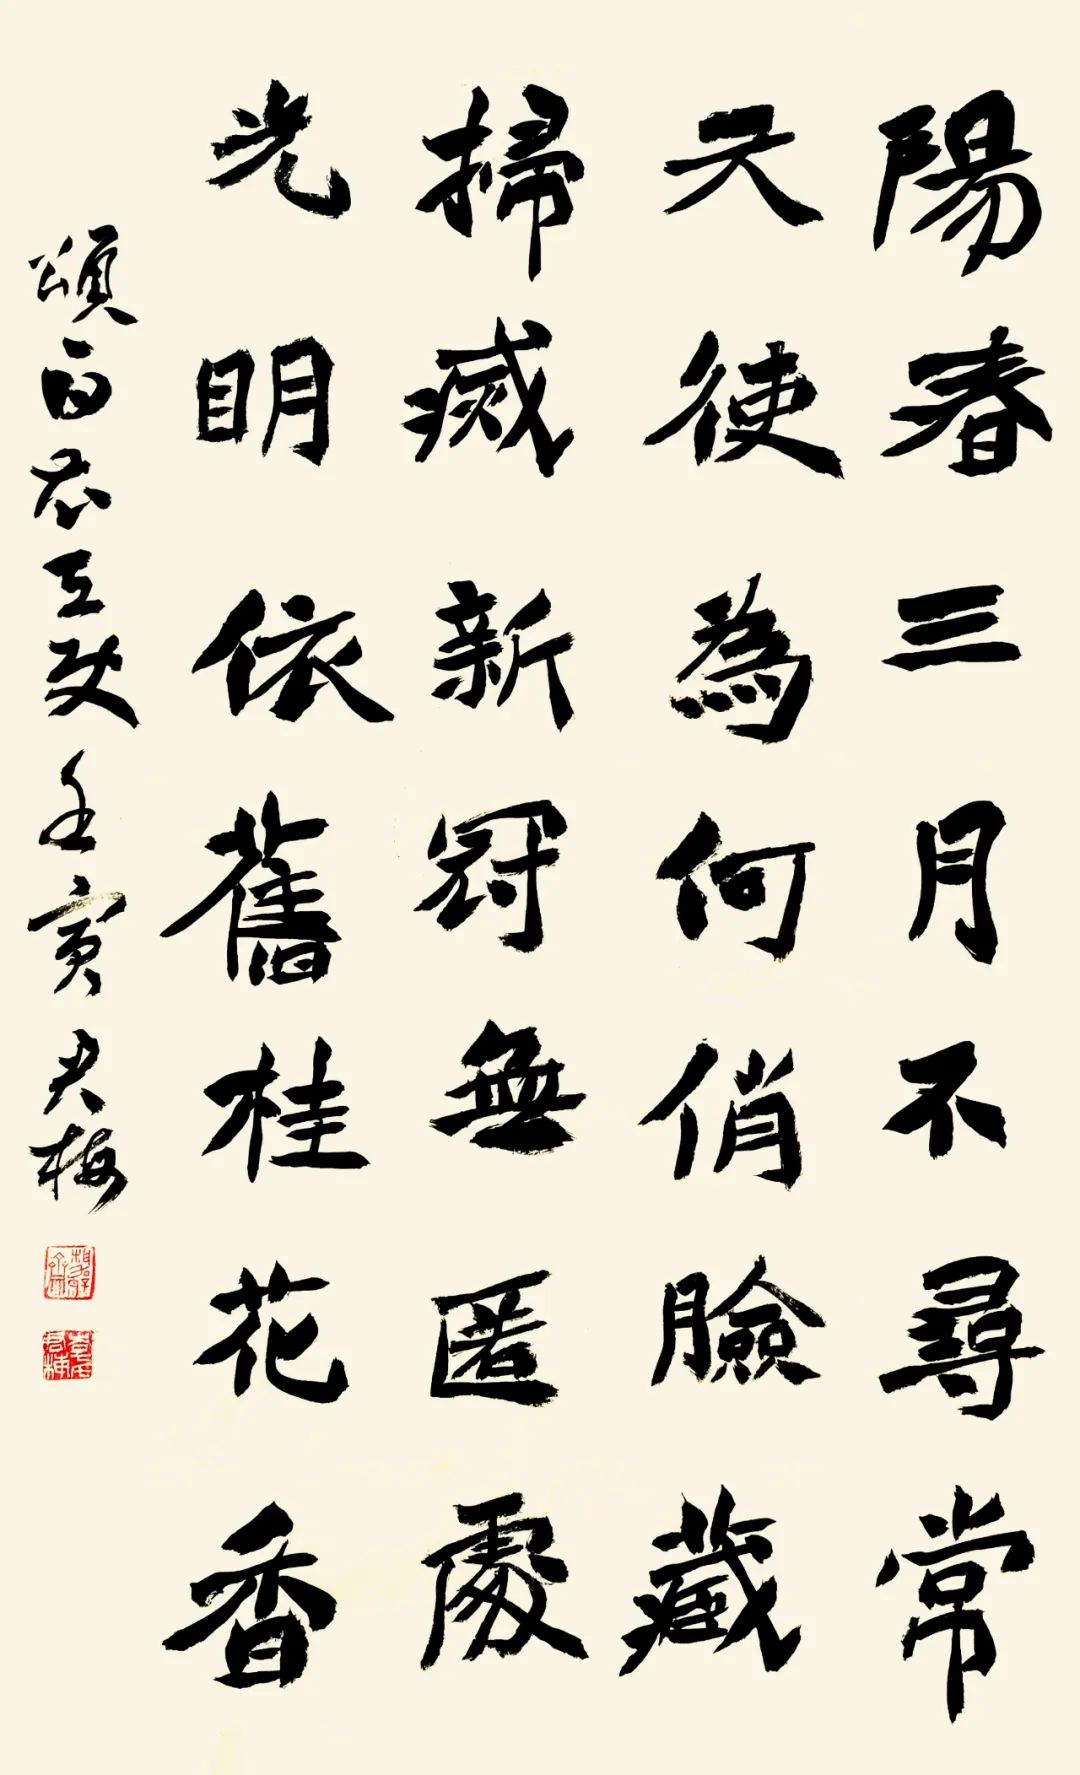 陽春三月不尋常
天使為何俏臉藏
掃滅新冠無匿處
光明依舊桂花香
頌白衣天使 壬寅 君梅